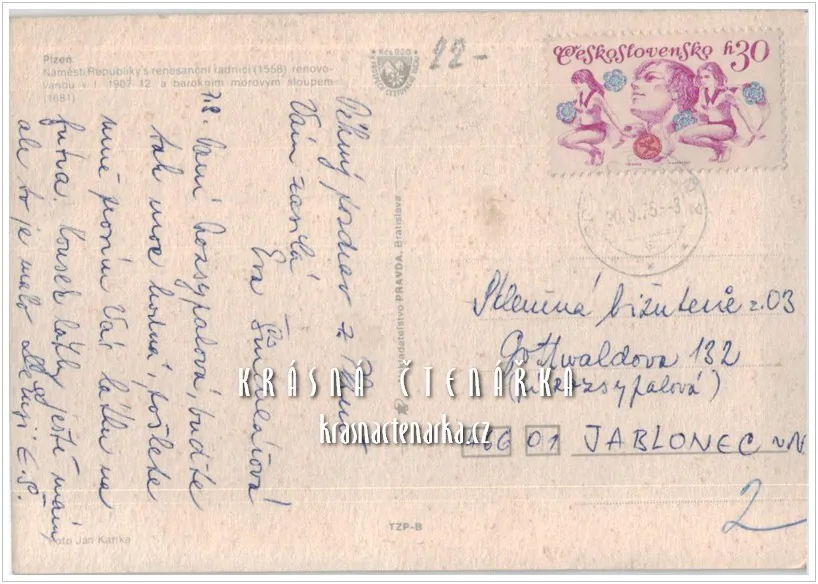 Plzeň
Náměstí Republiky s renesanční radnicí (1558) renovo-
vanou v l. 1907-12 a barokním morovým sloupem
(1681)
Kčs 0,20
22-
Československo h 30
30.9.75-8
Pěkný pozdrav z Plzně
Vám zasílá
Eva
P.S. Paní Rozsypalová, buďte
tak moc hodná, pošlete
mně prosím Vás látku na
futra. Kousek látky ještě mám,
ale to je málo. Děkuji E. Š.
Nakladatelstvo PRAVDA, Bratislava
Skleněná bižuterie z. 03
Gottwaldova 132
(p. Rozsypalová)
466 01 JABLONEC n/N.
2
KRÁSNÁ ČTENÁŘKA
krasnactenarka.cz
TZP-B
Foto Ján